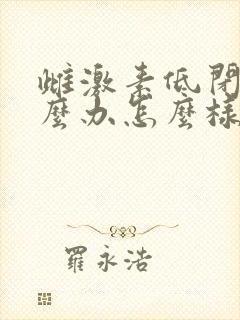 雌激素低閉
麼办怎麼様
羅永浩